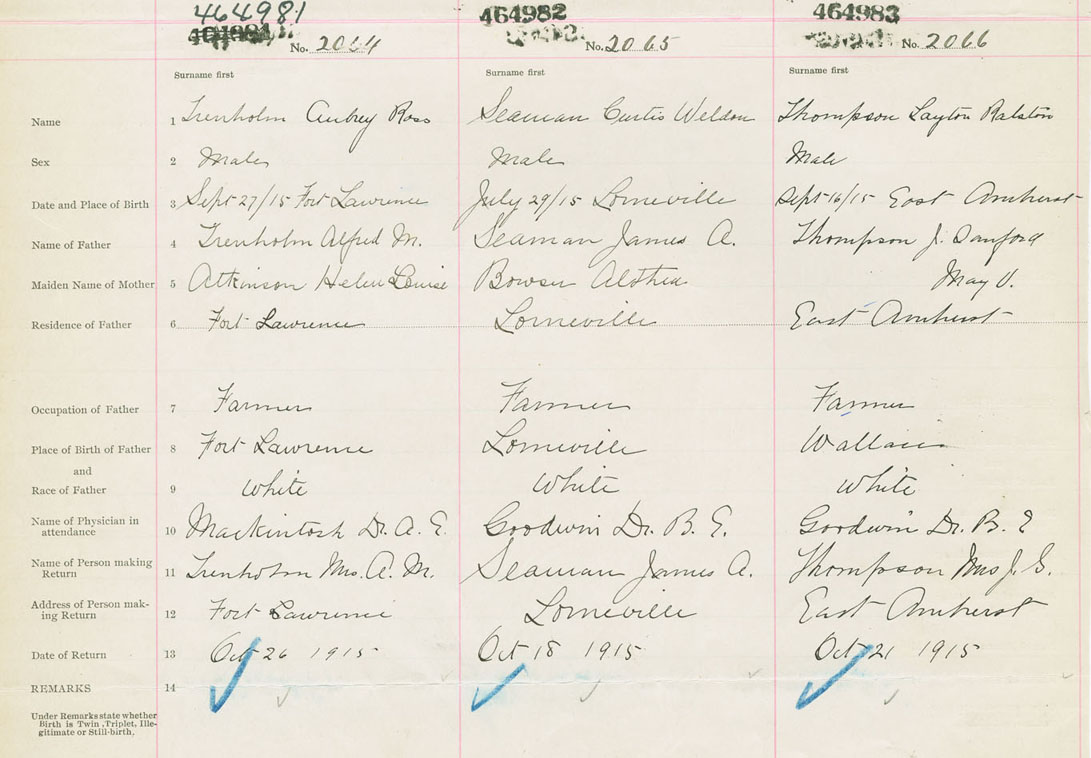 464981 464982 464983
No. 2064 No. 2065 No. 2066
Surname first Surname first Surname first
Name 1 Trenholm Aubrey Ross Seaman Curtis Weldon Thompson Layton Ralston
Sex 2 Male Male Male
Date and Place of Birth 3 Sept 27/15 Fort Lawrence July 29/15 Lorneville Sept 16/15 East Amherst
Name of Father 4 Trenholm Alfred M. Seaman James A. Thompson J. Sanford
Maiden Name of Mother 5 Atkinson Helen Louise Bowser Alethea May V.
Residence of Father 6 Fort Lawrence Lorneville East Amherst
Occupation of Father 7 Farmer Farmer Farmer
Place of Birth of Father 8 Fort Lawrence Lorneville Wallace
and
Race of Father 9 White White White
Name of Physician in
attendance 10 Mackintosh Dr. A. E. Goodwin Dr. B. E. Goodwin Dr. B. E
Name of Person making
Return 11 Trenholm Mrs. A. M. Seaman James A. Thompson Mrs J. S.
Address of Person mak-
ing Return 12 Fort Lawrence Lorneville East Amherst
Date of Return 13 Oct 26 1915 Oct 18 1915 Oct 21 1915
REMARKS 14
Under Remarks state whether
Birth is Twin, Triplet, Ille-
gitimate or Still-birth.